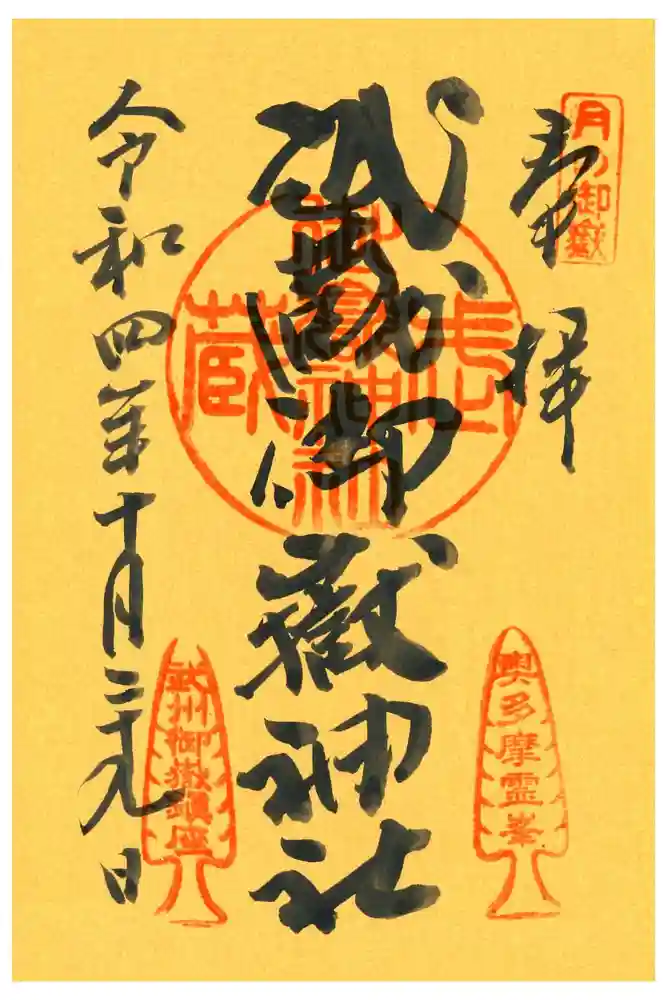 月の御嶽
奉拝
武蔵御嶽神社
武蔵御嶽神社
奥多摩霊峯
武州御嶽鎮座
令和四年十月二十九日